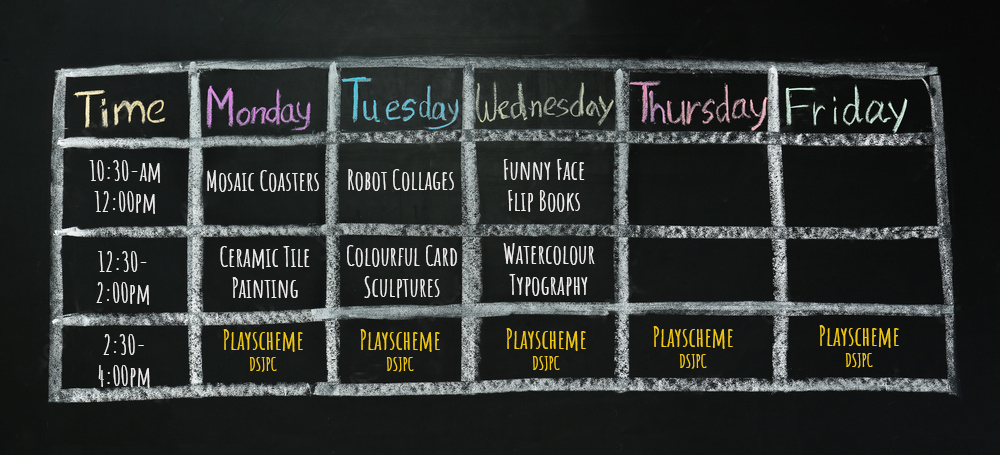 Time Monday Tuesday Wednesday Thursday Friday
10:30-am Mosaic Coasters Robot Collages Funny Face
12:00pm Flip Books
12:30- Ceramic Tile Colourful Card Watercolour
2:00pm Painting Sculptures Typography
2:30- Playscheme Playscheme Playscheme Playscheme Playscheme
4:00pm DSJPC DSJPC DSJPC DSJPC DSJPC